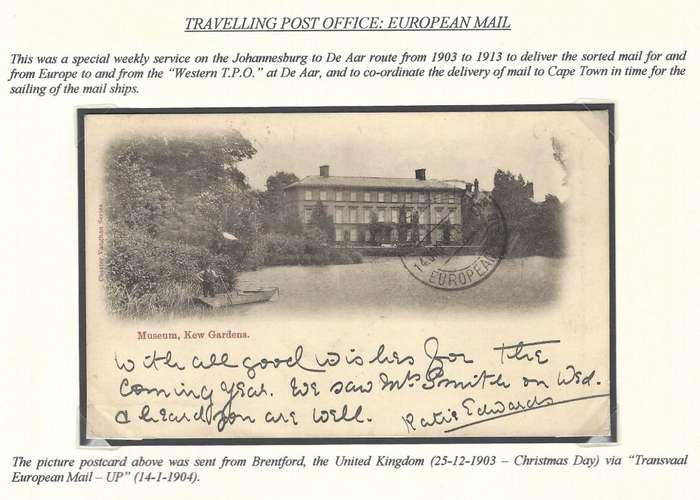 TRAVELLING POST OFFICE: EUROPEAN MAIL
This was a special weekly service on the Johannesburg to De Aar route from 1903 to 1913 to deliver the sorted mail for and
from Europe to and from the “Western T.P.O.” at De Aar, and to co-ordinate the delivery of mail to Cape Town in time for the
sailing of the mail ships.
Chester Vaughan Series
EUROPEAN
Museum, Kew Gardens.
With all good wishes for the
coming year. We saw Mrs Smith on Wed.
& heard you are well. Katie Edwards
The picture postcard above was sent from Brentford, the United Kingdom (25-12-1903 – Christmas Day) via “Transvaal
European Mail – UP” (14-1-1904).